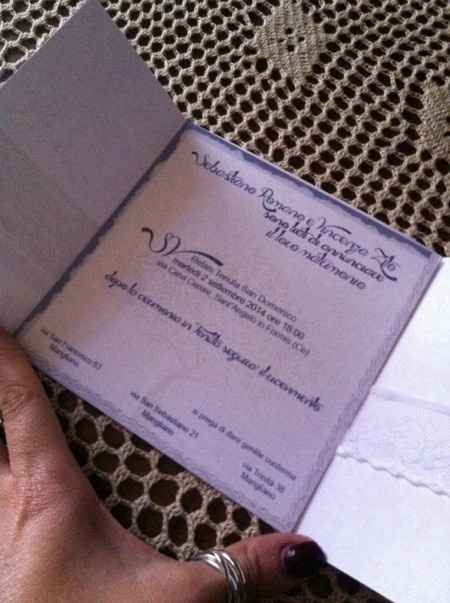 Sebastiano Romano e Vincenza
sono lieti di annunciare
il loro matrimonio
Tenuta San Domenico
martedì 2 settembre 2014 ore 18:00
Sant'Angelo in Formis (Ce)
dopo la cerimonia in Tenuta seguirà il ricevimento
si prega di dare gentile conferma
via San Francesco 53
Marigliano
via San Sebastiano 21
Marigliano
via Trieste 36
Marigliano